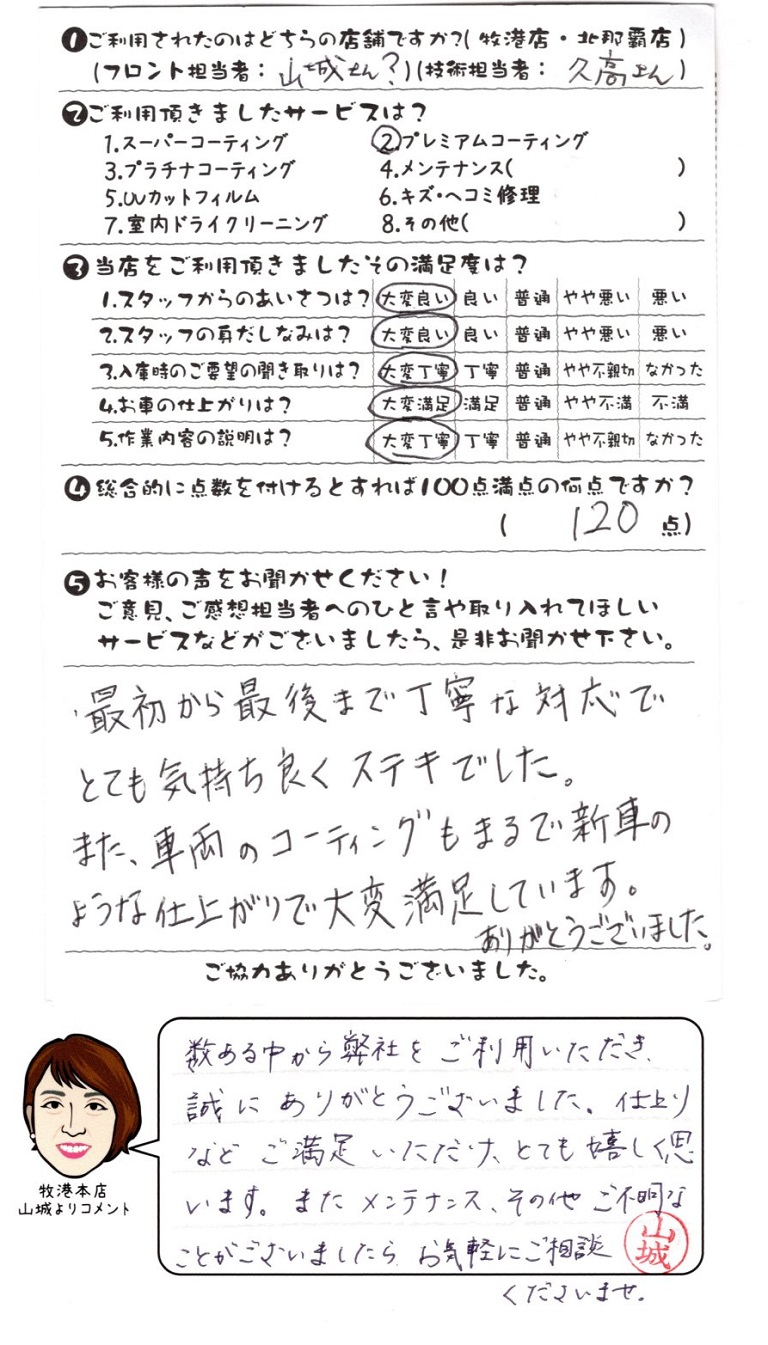 ❶ご利用されたのはどちらの店舗ですか?(牧港店・北那覇店)
(フロント担当者: 山城さん?)(技術担当者: 久高さん)
❷ご利用頂きましたサービスは?
1.スーパーコーティング ②.プレミアムコーティング
3.プラチナコーティング 4.メンテナンス( )
5.UVカットフィルム 6.キズ・ヘコミ修理
7.室内ドライクリーニング 8.その他( )
❸当店をご利用頂きましたその満足度は?
1.スタッフからのあいさつは? 大変良い 良い 普通 やや悪い 悪い
2.スタッフの身だしなみは? 大変良い 良い 普通 やや悪い 悪い
3.入庫時のご要望の聞き取りは? 大変丁寧 丁寧 普通 やや不親切 なかった
4.お車の仕上がりは? 大変満足 満足 普通 やや不満 不満
5.作業内容の説明は? 大変丁寧 丁寧 普通 やや不親切 なかった
❹総合的に点数を付けるとすれば100点満点の何点ですか?
( 120 点)
❺お客様の声をお聞かせください!
ご意見、ご感想担当者へのひと言や取り入れてほしい
サービスなどがございましたら、是非お聞かせ下さい。
最初から最後まで丁寧な対応で
とても気持ち良くステキでした。
また、車両のコーティングもまるで新車の
ような仕上がりで大変満足しています。
ありがとうございました。
ご協力ありがとうございました。
数ある中から弊社をご利用いただき、
誠にありがとうございました。仕上り
などご満足いただけ、とても嬉しく思
います。またメンテナンス、その他ご不明な
ことがございましたら、お気軽にご相談
くださいませ。
山城
牧港本店
山城よりコメント